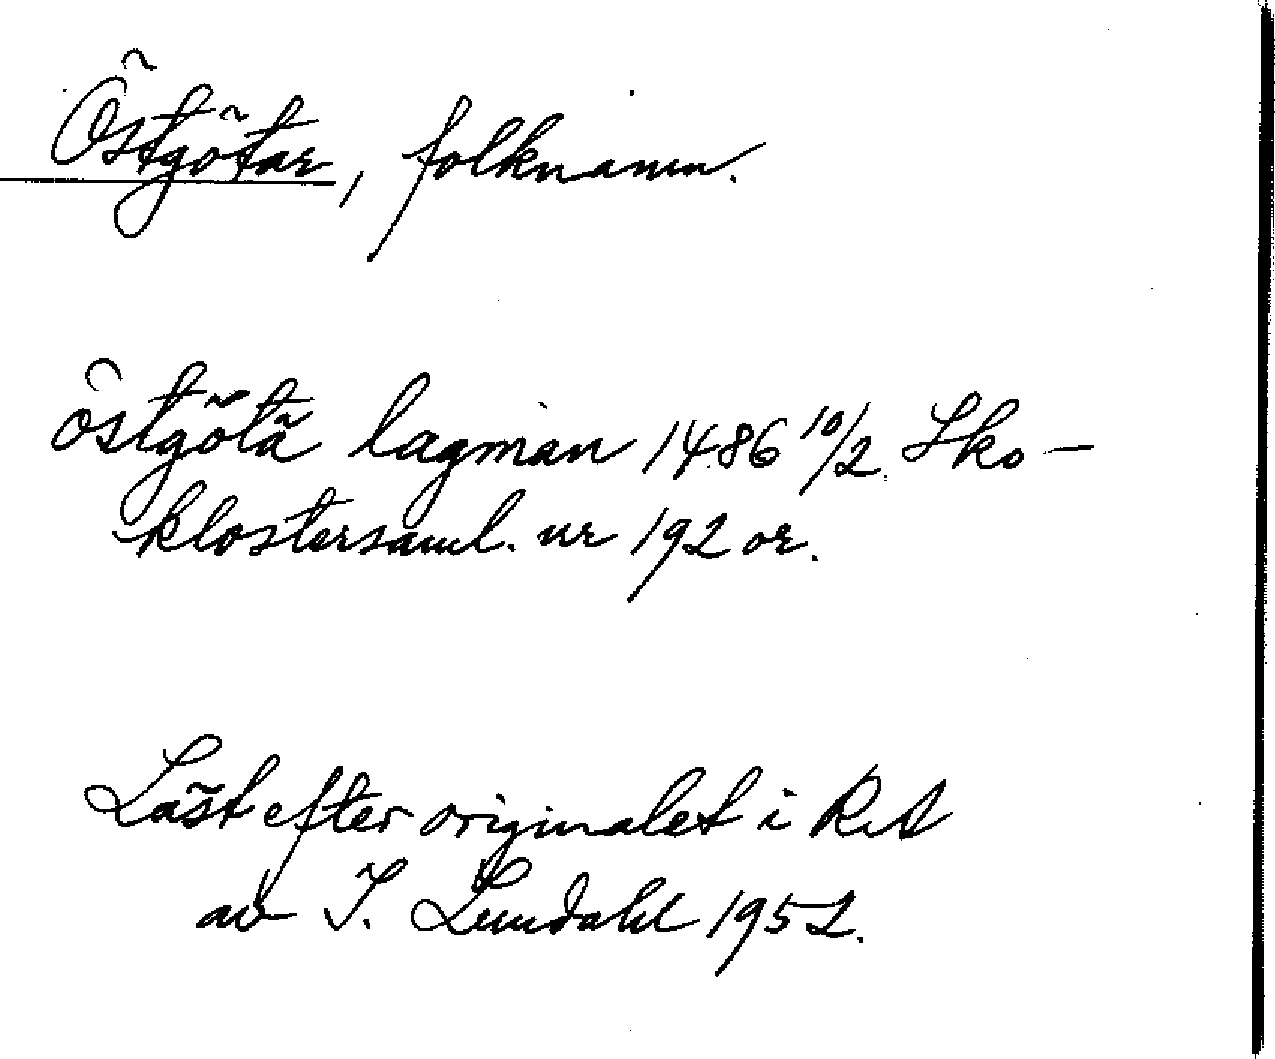 Östgötar, folknamn.
östgötä lagman 1486 10/2 Sko-
klostersaml. nr 192 or.
Läst efter originalet i RA
av I. Lundahl 1952.